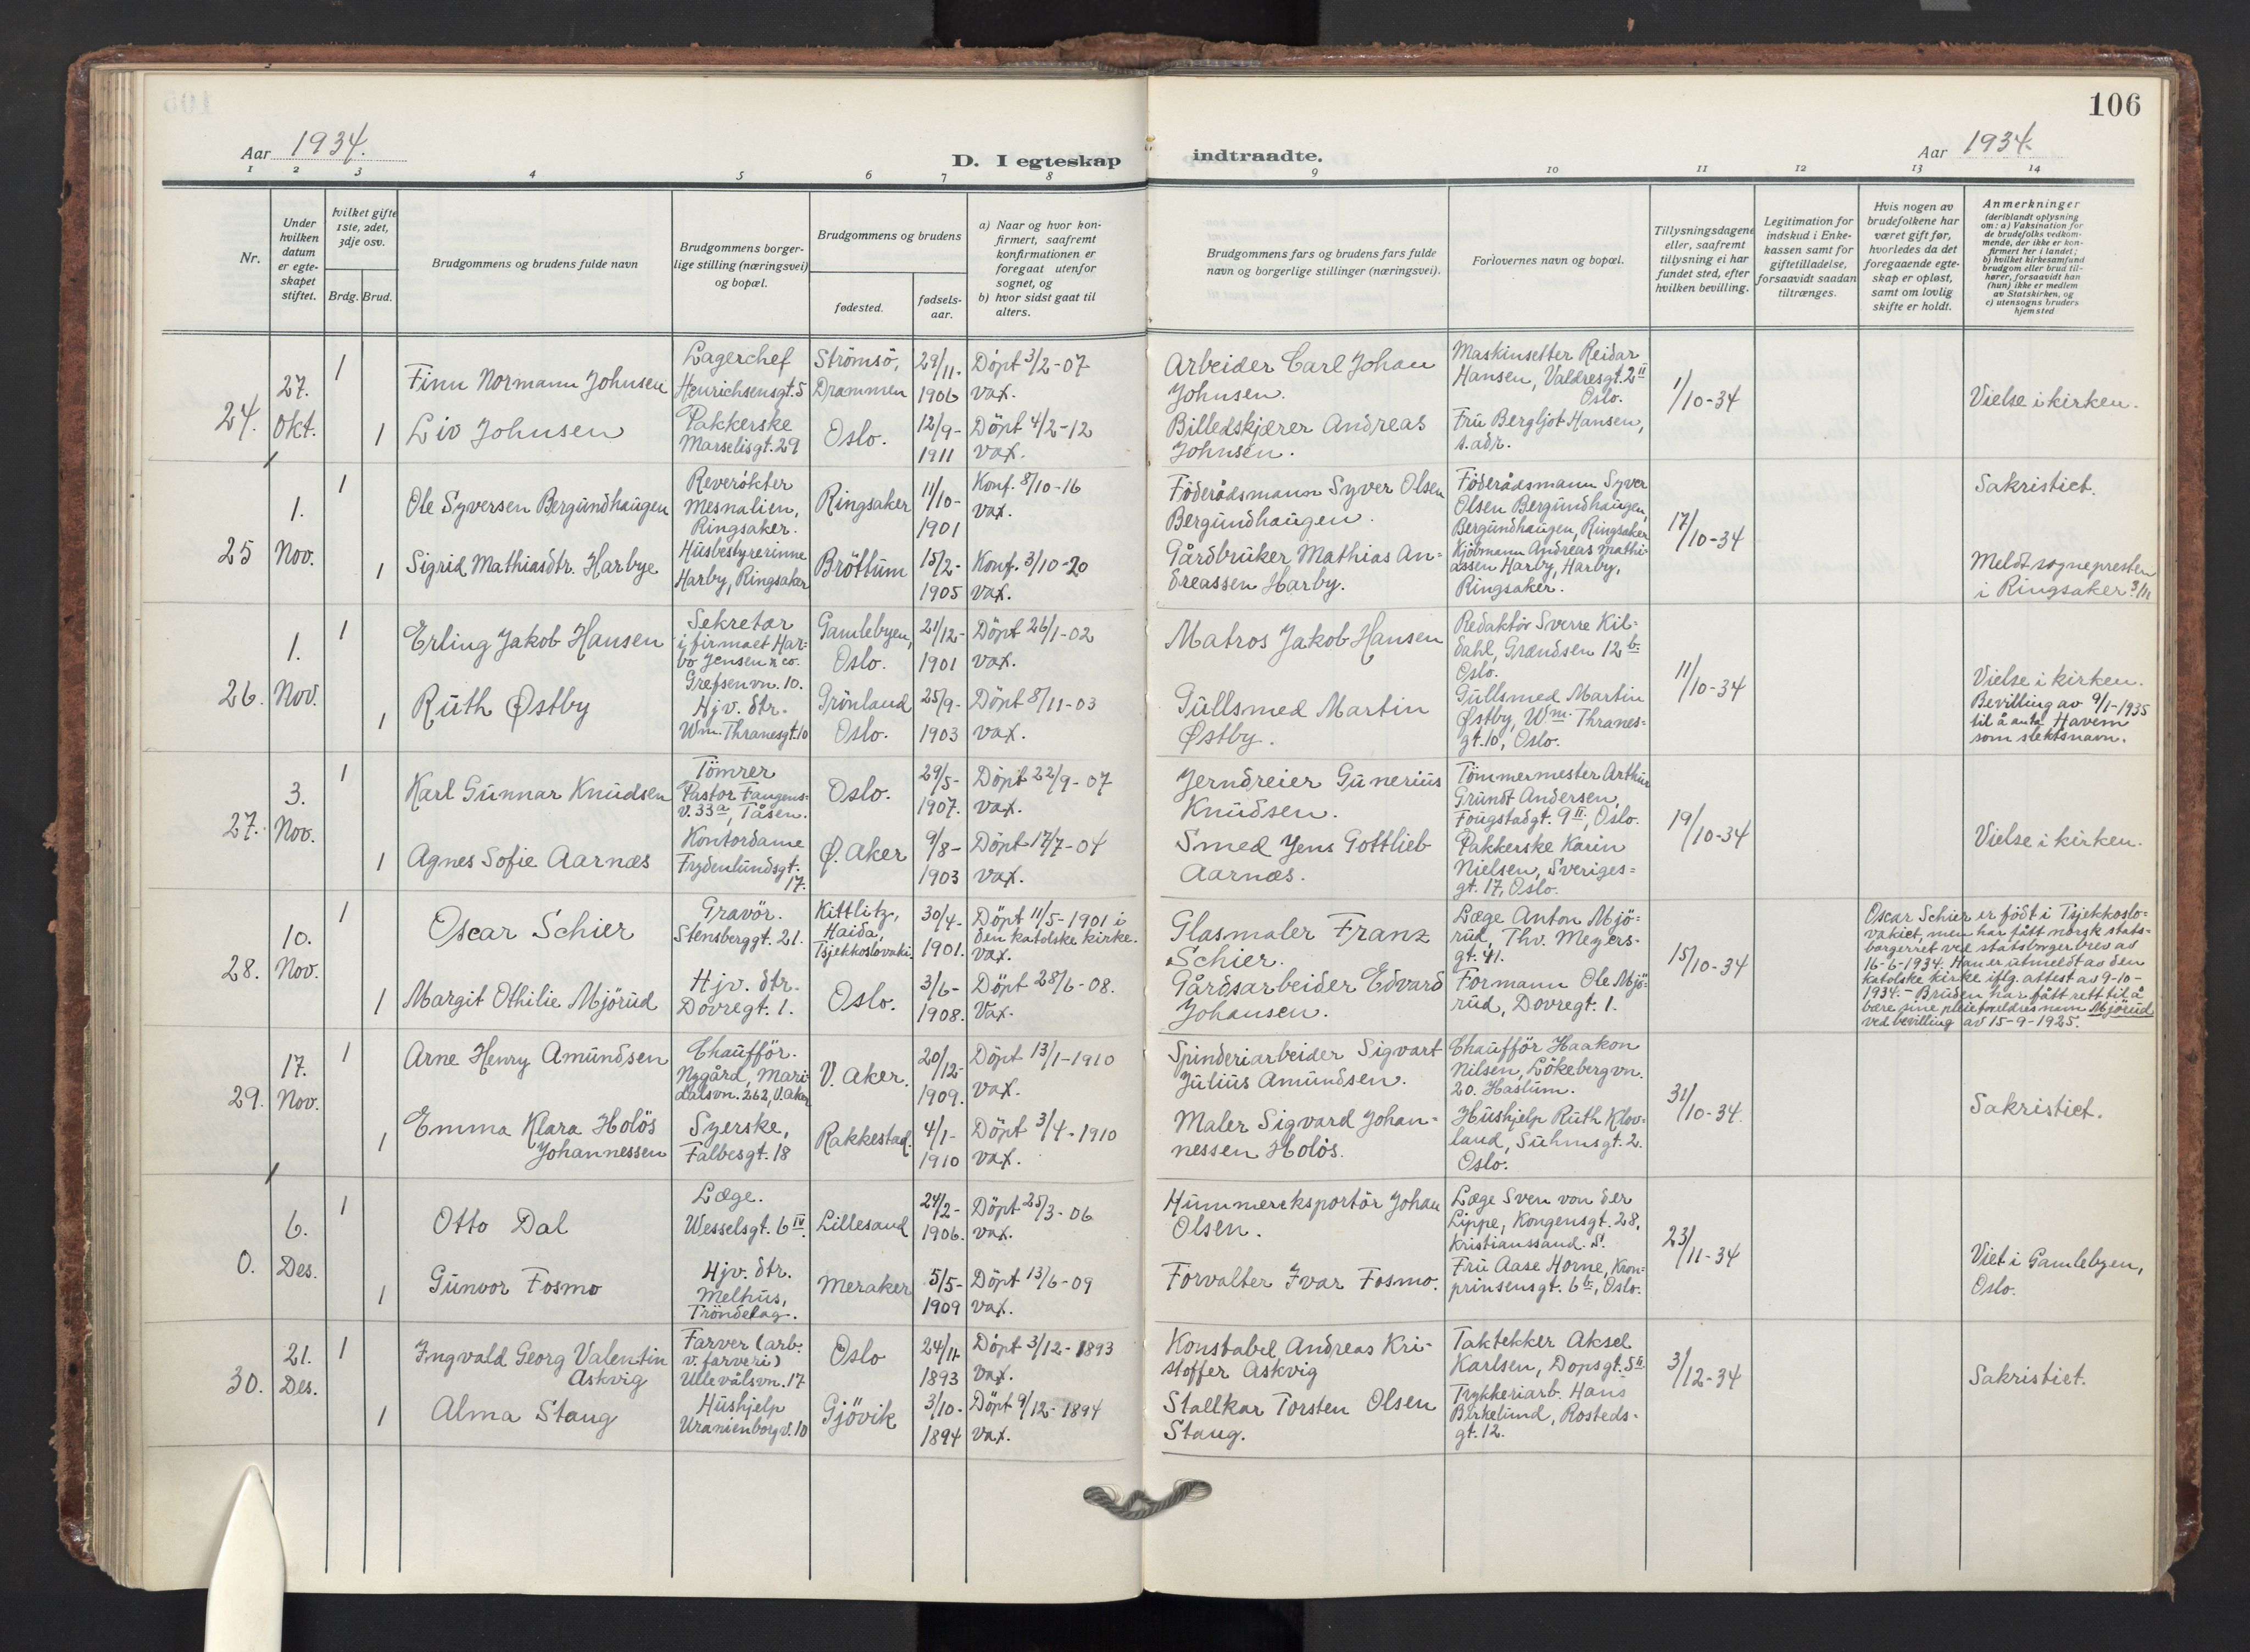 106
Aar 1934.
D. I egteskap indtraadte.
Aar 1934.
1 2 3 4 5 6 7 8 9 10 11 12 13 14
Nr.
Under
hvilken
datum
er egte-
skapet
stiftet.
hvilket gifte
1ste, 2det,
3dje osv.
Brdg. Brud.
Brudgommens og brudens fulde navn
Brudgommens borger-
lige stilling (næringsvei)
og bopæl.
Brudgommens og brudens
fødested.
fødsels-
aar.
a) Naar og hvor kon-
firmert, saafremt
konfirmationen er
foregaat utenfor
sognet, og
b) hvor sidst gaat til
alters.
Brudgommens fars og brudens fars fulde
navn og borgerlige stillinger (næringsvei).
Forlovernes navn og bopæl.
Tillysningsdagene
eller, saafremt
tillysning ei har
fundet sted, efter
hvilken bevilling.
Legitimation for
indskud i Enke-
kassen samt for
giftetilladelse,
forsaavidt saadan
tiltrænges.
Hvis nogen av
brudefolkene har
været gift før,
hvorledes da det
foregaaende egte-
skap er opløst,
samt om lovlig
skifte er holdt.
Anmerkninger
(deriblandt oplysning
om: a) Vaksination for
de brudefolks vedkom-
mende, der ikke er kon-
firmert her i landet;
b) hvilket kirkesamfund
brudgom eller brud til-
hører, forsaavidt han
(hun) ikke er medlem
av Statskirken, og
c) utensogns bruders
hjemsted
24.
27.
Okt.
1
Finn Normann Johnsen
Lagerchef
Henrichsensgt. 5
Strömsö,
Drammen
29/11-
1906
Döpt 3/2-07
vax.
Arbeider Carl Johan
Johnsen.
Maskinsetter Reidar
Hansen, Valdresgt. 2 II
Oslo.
1/10-34
Vielse i kirken.
1
Liv Johnsen
Pakkerske
Marselisgt. 29
Oslo.
12/9-
1911
Döpt 4/2-12
vax.
Billedskjærer Andreas
Johnsen.
Fru Bergljot Hansen,
s. adr.
25
1.
Nov.
1
Ole Syversen Bergundhaugen
Reverökter
Mesnalien,
Ringsaker.
Ringsaker
11/10-
1901
Konf. 8/10-16
vax.
Föderådsmann Syver Olsen
Bergundhaugen.
Föderådsmann Syver
Olsen Bergundhaugen,
Bergundhaugen, Ringsaker
17/10-34
Sakristiet.
1
Sigrid Mathiasdtr. Harbye
Husbestyrerinne
Harby, Ringsaker
Bröttum
15/2-
1905
Konf. 3/10-20
vax.
Gårdbruker Mathias An-
dreassen Harby.
Kjöbmann Andreas Mathi-
assen Harby, Harby,
Ringsaker.
Meldt sognepresten
i Ringsaker 3/11
26.
1.
Nov.
1
Erling Jakob Hansen
Sekretær
i firmaet Har-
bo Jensen & co.
Grefsenvn. 10.
Gamlebyen,
Oslo.
21/12-
1901
Döpt 26/1-02
vax.
Matros Jakob Hansen
Redaktör Sverre Kil-
dahl, Grændsen 12 b.
Oslo.
11/10-34
Vielse i kirken.
Bevilling av 9/1-1935
til å anta Havem
som slektsnavn.
1
Ruth Østby
Hjv. dtr.
Wm. Thranesgt. 10
Grönland
Oslo.
25/9-
1903
Döpt 8/11-03
vax.
Gullsmed Martin
Østby.
Gullsmed Martin
Østby, Wm. Thranes-
gt. 10, Oslo.
27.
3.
Nov.
1
Karl Gunnar Knudsen
Tömrer
Pastor Fangens-
v. 33 a, Tåsen.
Oslo.
29/5-
1907.
Döpt 22/9-07
vax.
Jerndreier Gunerius
Knudsen.
Tömmermester Arthur
Grundt Andersen,
Fougstadgt. 9 II, Oslo.
19/10-34
Vielse i kirken.
1
Agnes Sofie Aarnæs
Kontordame
Frydenlundsgt.
17.
Ø. Aker
9/8-
1903
Döpt 17/7-04
vax.
Smed Jens Gottlieb
Aarnæs.
Pakkerske Karin
Nielsen, Sveriges-
gt. 17, Oslo.
28.
10.
Nov.
1
Oscar Schier
Gravör.
Stensberggt. 21.
Kittlitz,
Haida,
Tsjekkoslovaki.
30/4-
1901.
Döpt 11/5-1901 i
den katolske kirke.
vax.
Glasmaler Franz
Schier.
Læge Anton Mjö-
rud, Thv. Meyers-
gt. 41.
15/10-34
Oscar Schier er född i Tsjekkoslo-
vakiet, men har fått norsk stats-
borgerret ved statsborgerbrev av
16-6-1934. Han er utmeldt av den
katolske kirke iflg. attest av 9-10-
1934. - Bruden har fått rett til å
bære sine pleieforeldres navn Mjörud
ved bevilling av 15-9-1925.
1
Margit Othilie Mjörud
Hjv. dtr.
Dovregt. 1.
Oslo.
3/6-
1908.
Döpt 28/6-08.
Vax.
Gårdsarbeider Edvard
Johansen.
Formann Ole Mjö-
rud, Dovregt. 1.
29.
17.
Nov.
1
Arne Henry Amundsen
Chaufför.
Nygård, Mari-
dalsvn. 262, V. Aker
V. Aker.
20/12-
1909.
Döpt 13/1-1910
vax.
Spinderiarbeider Sigvart
Julius Amundsen.
Chaufför Haakon
Nilsen, Lökebergvn.
20. Haslum.
31/10-34.
Sakristiet.
1
Emma Klara Holös
Johannessen
Syerske,
Falbesgt. 18
Rakkestad.
4/1-
1910
Döpt 3/4-1910
vax.
Maler Sigvard Johan-
nessen Holös.
Hushjelp Ruth Klov-
land, Suhmsgt. 2.
Oslo.
0.
6.
Des.
1
Otto Dal
Læge.
Wesselsgt. 6 IV.
Lillesand
24/2-
1906.
Döpt 25/3-06
vax.
Hummereksportör Johan
Olsen.
Læge Sven von der
Lippe, Kongensgt. 28,
Kristianssand. S.
23/11-34
Viet i Gamlebyen,
Oslo.
1
Gunvor Fosmo
Hjv. dtr.
Melhus,
Tröndelag.
Meraker
5/5-
1909
Döpt 13/6-09
vax.
Forvalter Ivar Fosmo.
Fru Aase Horne, Kron-
prinsensgt. 6 b, Oslo.
30.
21.
Des.
1
Ingvald Georg Valentin
Askvig
Farver (arb.
v. farveri)
Ullevålsvn. 17
Oslo
24/11-
1893
Döpt 3/12-1893
vax.
Konstabel Andreas Kri-
stoffer Askvig
Taktekker Aksel
Karlsen, Dopsgt. 5 II
3/12-34
Sakristiet.
1
Alma Staug
Hushjelp
Uranienborgv. 10
Gjövik
3/10-
1894
Döpt 9/12-1894
vax.
Stallkar Torsten Olsen
Staug.
Trykkeriarb. Hans
Birkelund, Rosteds-
gt. 12.